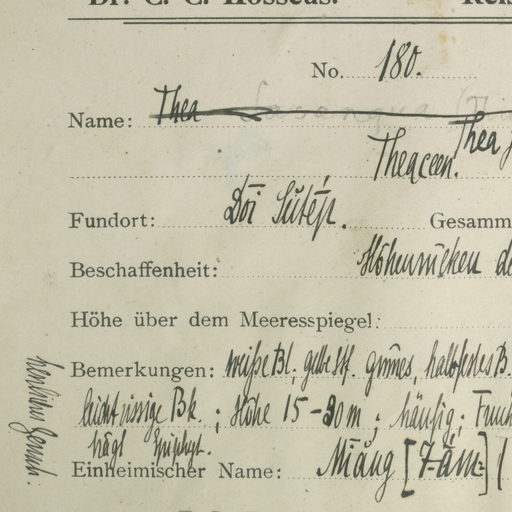 Dr. C. C. Hosseus. Reis
No. 180.
Name: Thea Sasanqua
Thea
Theaceen.
Fundort: Doi Sutép. Gesamm
Beschaffenheit: Höhenrücken de
Höhe über dem Meeresspiegel:
Bemerkungen: weiße Bl, gelbe Stf. grünes, halbfestes B.
leicht rissige Bk.; Höhe 15-20m; häufig;
Epiphyt.
Einheimischer Name: Miäng